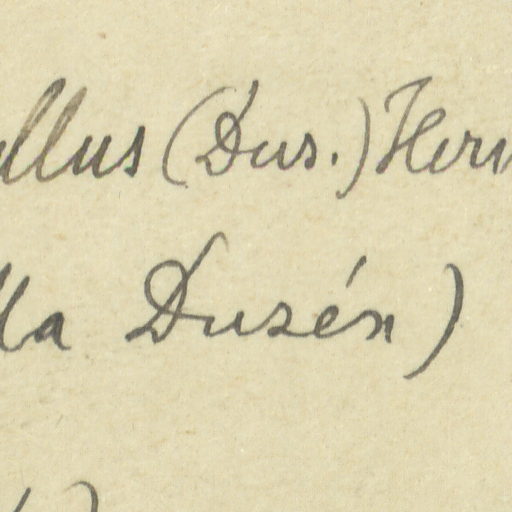 llus (Dus.) Her
lla Dusén)
)